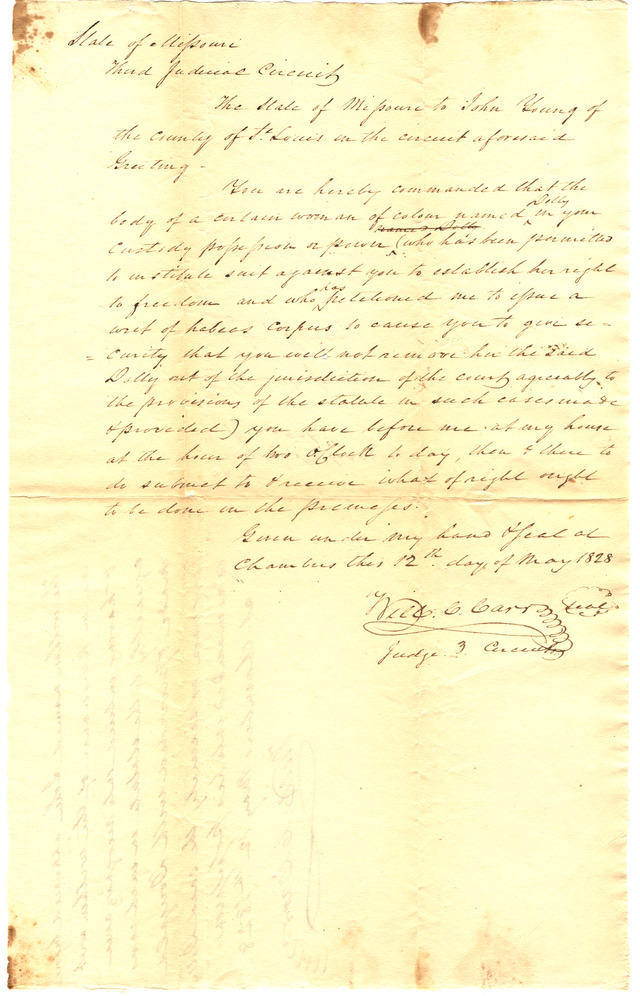 State of Missouri
Third Judicial Circuit
The State of Missouri to John Young of
the county of St. Louis in the circuit aforesaid
Greeting -
You are hereby commanded that the
body of a certain woman of colour named Dolly in your
named Dolly
custody possession or power (who has been permitted
to institute suit against you to establish her right
to freedom and who has petitioned me to issue a
writ of habeas corpus to cause you to give se-
=curity that you will not remove her the said
Dolly out of the jurisdiction of the court agreeably to
the provisions of the statute in such cases made
& provided) you have before me at my house
at the hour of two O'Clock to day, then & there to
do submit to & receive what of right ought
to be done in the premises.
Given under my hand & seal at
Chambers this 12th day of May 1828
Will. C. Carr seal
Judge 3 Circuit